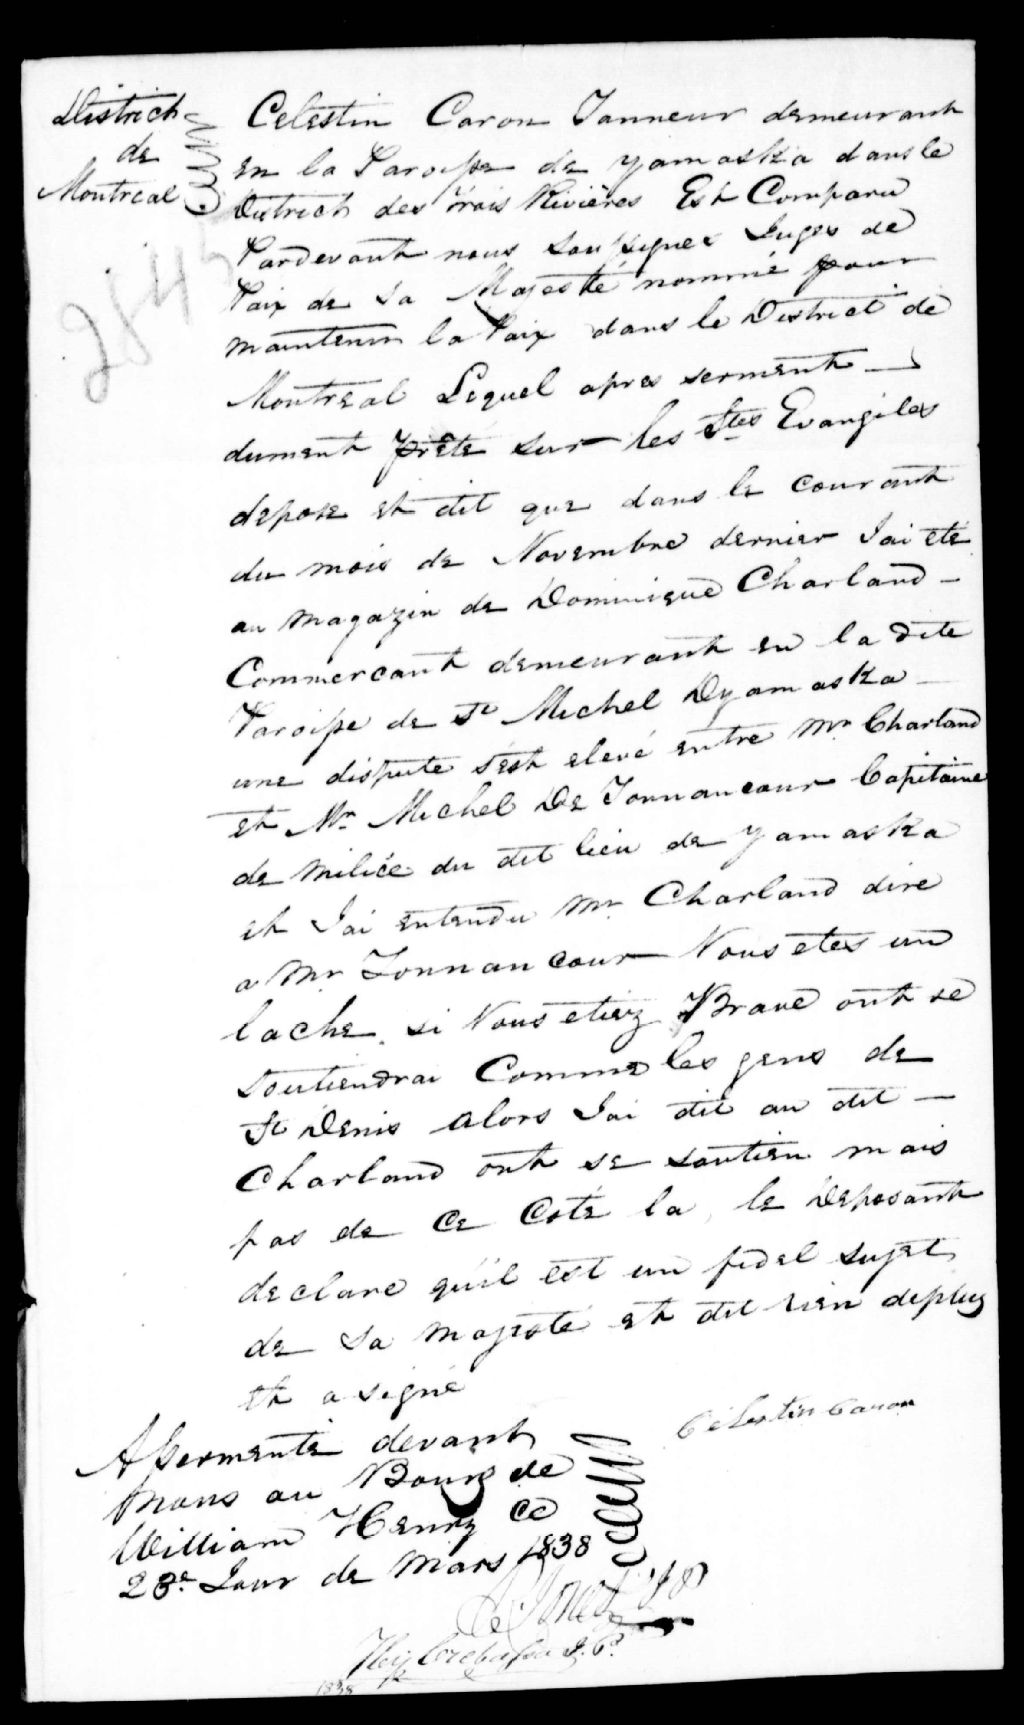 District
de
Montreal
2845
Celestin Caron Tanneur demeurant
en la Paroisse de yamaska dans le
District des Trois Rivières Est Comparu
Pardevant nous soussignes Juges de
Paix de Sa Majesté nommé pour
maintenir la Paix dans le District de
Montreal Lequel apres serment
dument prêté sur les Stes Evangiles
depose et dit que dans le courant
du mois de Novembre dernier Jai eté
au magazin de Dominique Charland
Commercant demeurant en la dite
Paroisse de St Michel Dyamaska
une dispute sest elevé entre Mr Charland
et Mr Michel De Tonnancour Capitaine
de milice du dit lieu de yamaska
et Jai entendu Mr Charland dire
a Mr Tonnancour Vous etes un
lache si Vous etiez Brave ont se
soutiendrai Comme les gens de
St Denis Alors Jai dit au dit
Charland ont se soutien mais
pas de Ce Coté la, le Deposant
declare quil est un fidel sujet
de Sa Majesté et dit rien deplus
et a signé
Celestin Caron
Assermenté devant
nous au Bourg de
William Henry Ce
28e Jour de Mars 1838
Hy Crebassa J.P.
1838